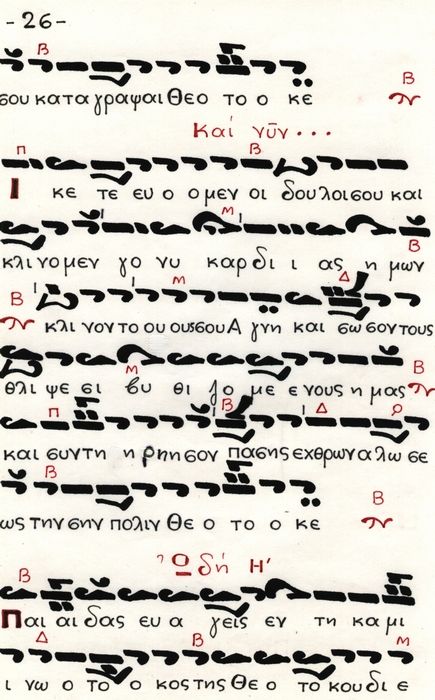 -26-
Β
σου κατα γραψαι Θεο το ο κε Β
Καί νῦν...
π Β
Ι κε τε ευ ο ο μεν οι δουλοι σου και
Μ
κλι νο μεν γο νυ καρ δι ι ας η μων Β
Μ Δ
Β κλι νον το ου ους σου Α γνη και σω σον τους
Μ
θλι ψε σι βυ θι ζο με ε νους η μας Β
π Β Δ
και συν τη η ρη σον πασης εχθρων α λω σε
Β
ως την σην πολιν Θε ο το ο κε Β
Ὠδή Η'
Β
Παι αι δας ευ α γεις εν τη κα μι
Δ Β Μ
ι νω ο το ο κος της Θε ο το κου δι ε